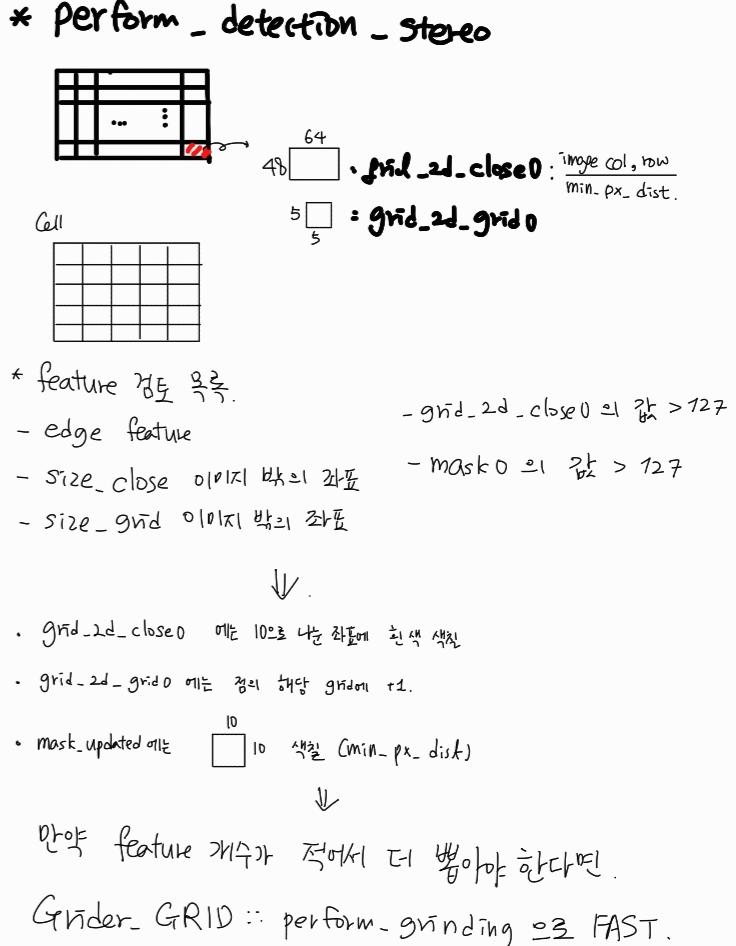 * perform_detection_stereo
64
48
· grid_2d_close0 : image col, row
min_px_dist.
5
5
: grid_2d_grid0
Cell
* feature 검토 목록.
- edge feature
- size_close 이미지 밖의 좌표
- size_grid 이미지 밖의 좌표
- grid_2d_close0 의 값 > 127
- mask0 의 값 > 127
⇓
· grid_2d_close0 에는 10으로 나눈 좌표에 흰색 색칠
· grid_2d_grid0 에는 점의 해당 grid에 +1.
10
· mask_updated 에는 10 색칠 (min_px_dist)
⇓
만약 feature 개수가 적어서 더 뽑아야 한다면.
Grider_GRID :: perform_grinding 으로 FAST.